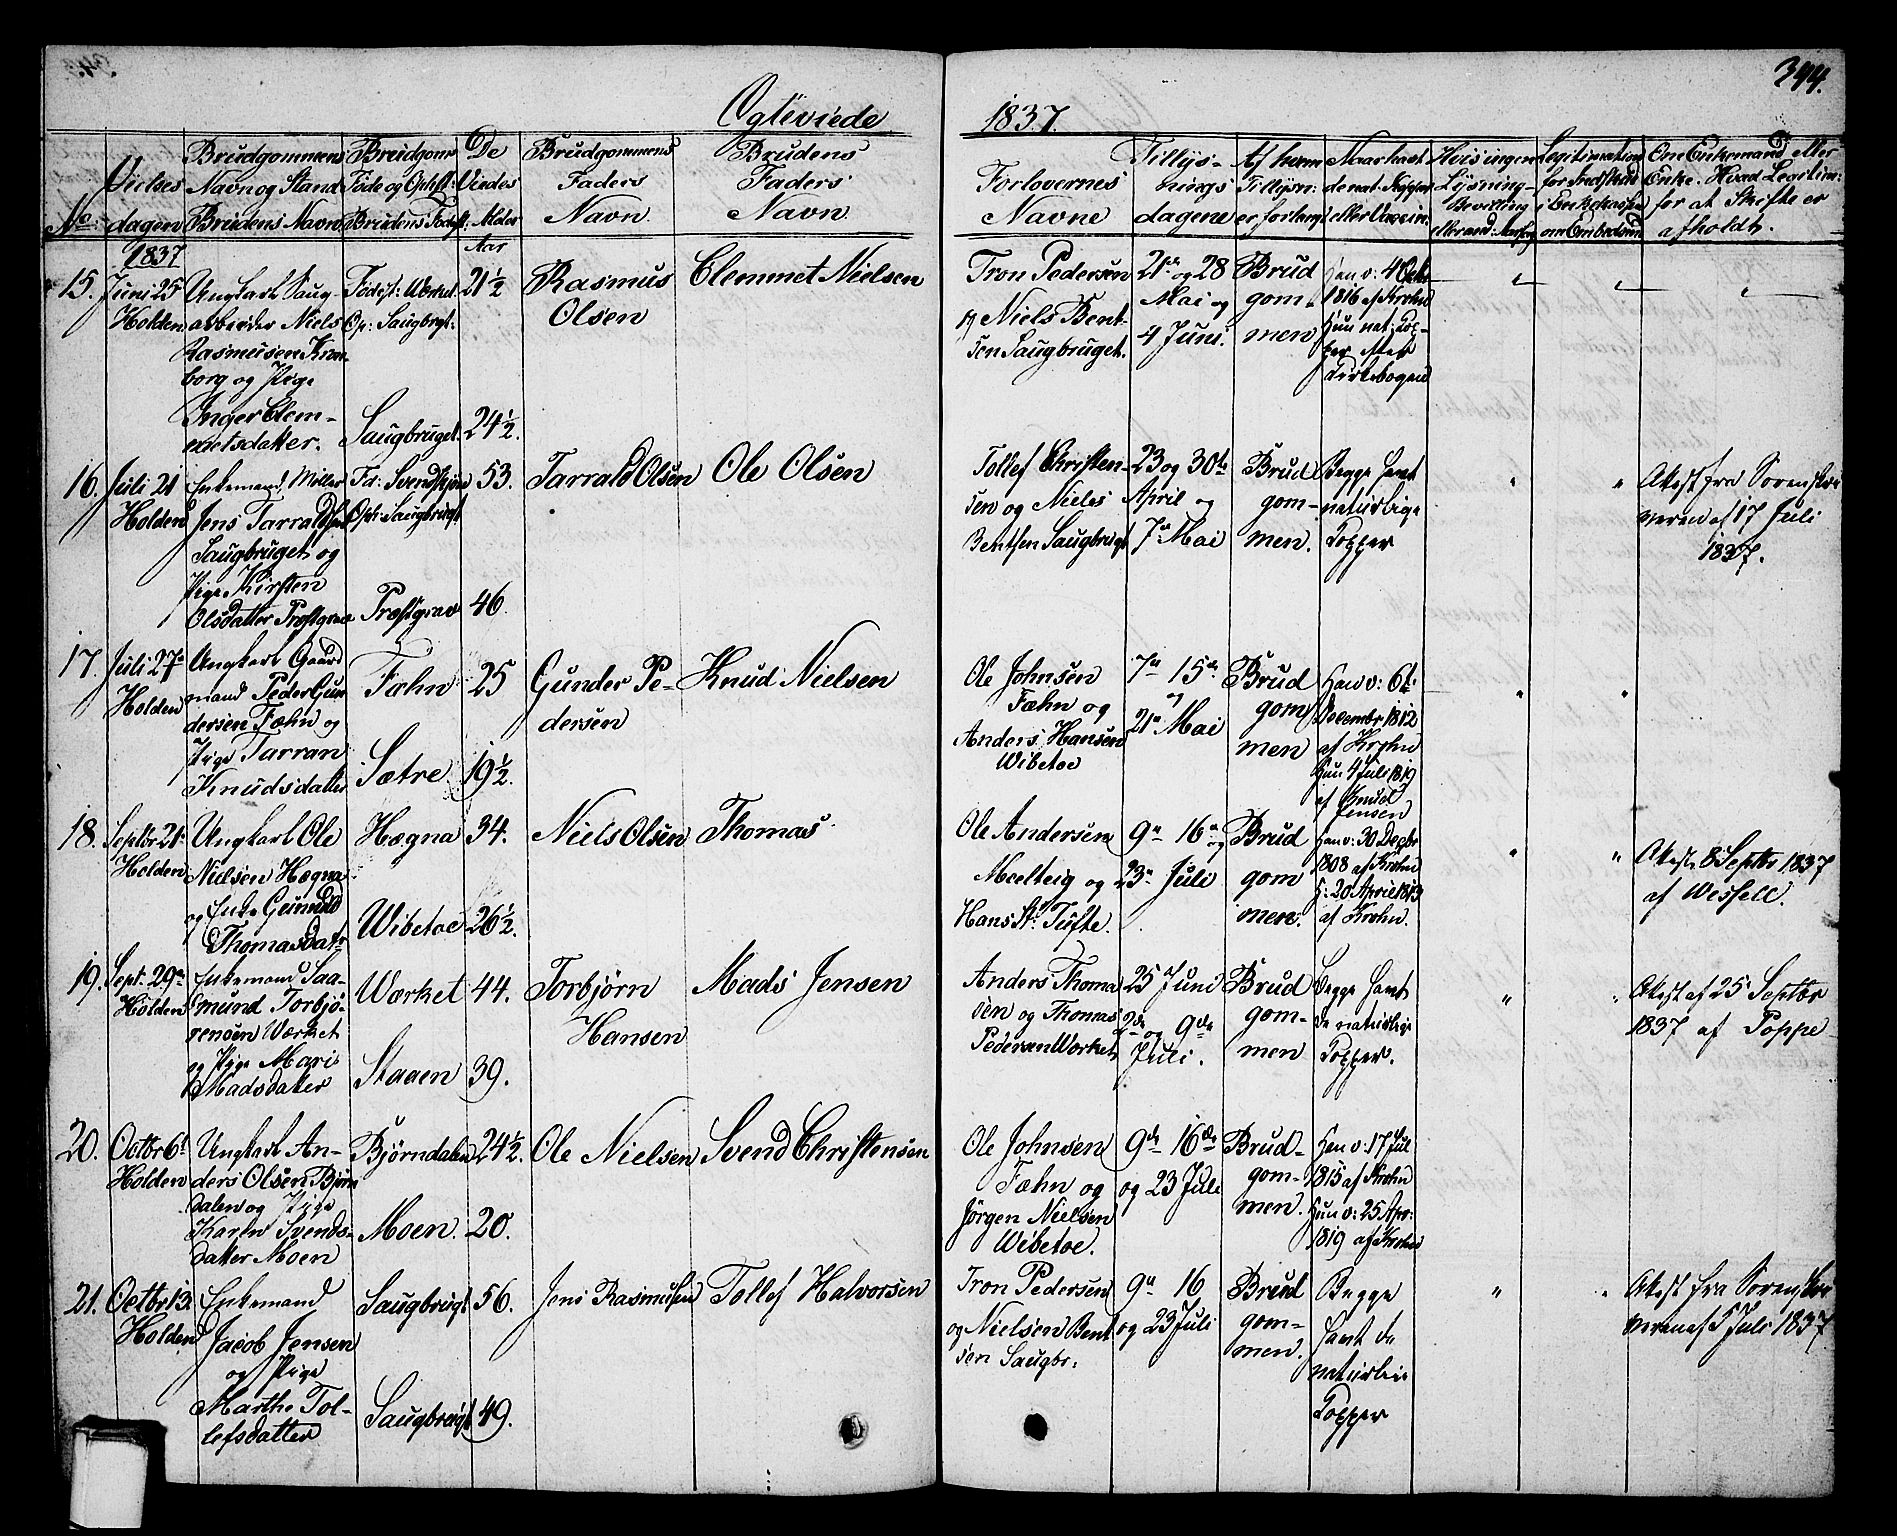 394.
Ogteviede
1837.
No
Vielses
dagen
Brudgommens
Navn og Stand
Brudens Navn
Brudgoms
Føde og Opholdst:
Brudens Fødest:
De
Viedes
Alder
Aar
Brudgommens
Faders
Navn.
Brudens
Faders
Navn.
Forlovernes
Navne
Tillys-
nings
dagene
Af hvem
Tillysn:
er forlangt
Naar havt
de nat. Kopper
eller Vaccin:
Hvis ingen
Lysning-
Bevilling
Legitimation
for Indskud
i Enkekassen
om Embedsmd
Om Enkemand eller
Enke. Hvad Legitim:
for at Skifte er
afholdt.
1837
15.
Juni 25
Holden
Ungkarl Saug-
arbeider Niels
Rasmusen Kron
borg og Pige
Inger Clem-
metsdatter.
Fødest: Værket
Op: Saugbrgt:
Saugbruget.
21½
24½.
Rasmus
Olsen
Clemmet Nielsen
Tron Pedersen
og Niels Bent-
sen Saugbruget.
21de og 28
Mai og
4 Juni.
Brud
gom-
men
Han v: 4 Octbr
1816 af Krohn
Hun nat: Kop-
per efter
Kirkebogen
16.
Juli 21
Holden
Enkemand, Møller
Jens Tarraldsen
Saugbruget og
Pige Kirsten
Olsdatter Præstgrav
Fød: Svendsøen
Oph: Saugbrugt
Præstgrav
53.
46.
Tarrald Olsen
Ole Olsen
Tollef Christen-
sen og Niels
Bentsen Saugbrugt
23 og 30te
April og
7de Mai
Brud
gom-
men.
Begge havt
naturlige
Kopper
Attest fra Sorenskri
veren af 17 Juli
1837.
17.
Juli 27de
Holden
Ungkarl Gaard
mand Peder Gun
dersen Fæhn og
Pige Tarran
Knudsdatter
Fæhn
Sætre
25
19½.
Gunder Pe-
dersen
Knud Nielsen
Ole Johnsen
Fæhn og
Anders Hansen
Wibetoe
7de 15de
og
21de Mai
Brud
gom
men
Han v: 6te
Decembr 1812
af Krohn
Hun 4 Juli 1819
af Knud
Jensen
18.
Septbr 21de
Holden
Ungkarl Ole
Nielsen Hægna
og Enke Gunnild
Thomasdatr
Hægna
Wibetoe
34.
26½.
Niels Olsen
Thomas
Ole Andersen
Moelteig og
Hans St: Tufte.
9de 16de og
23de Juli
Brud
gom
men.
Han v: 30 Decbr
1808 af Krohn
H: 20 April 1813
af Krohn.
Attest 8 Septbr 1837
af Wesseld.
19.
Sept: 29de
Holden
Enkemand Saa-
mund Torbjø-
rensen Værket
og Pige Mari
Madsdatter
Værket
Staaen
44.
39.
Torbjørn
Hansen
Mads Jensen
Anders Thoma
sen og Thomas
Pedersen Værket
25 Juni
2de og 9de
Juli.
Brud
gom-
men
Begge havt
de naturlige
Kopper.
Attest af 25 Septbr
1837 af Poppe
20.
Octbr 6te
Holden
Ungkarl An-
ders Olsen Bjørn
dalen og Pige
Karen Svends-
datter Moen
Bjørndalen
Moen.
24½.
20.
Ole Nielsen
Svend Christensen
Ole Johnsen
Fæhn og
Jørgen Nielsen
Wibetoe.
9de 16de
og 23 Juli
Brud-
gom-
men.
Han v: 17 Jul
1815 af Krohn
Hun v: 25 Apr:
1819 af Krohn
21.
Octbr 13.
Holden
Enkemand
Jacob Jensen
og Pige
Marthe Tol-
lefsdatter
Saugbrugt
Saugbrugt
56.
49.
Jens Rasmusen
Tollef Halvorsen
Tron Pedersen
og Nielsen Bent
sen Saugbr:
9de 16
og 23 Juli
Brud
gom-
men.
Begge
havt de
naturlige
Kopper
Attest fra Sorenskri
veren af 5 Juli 1837